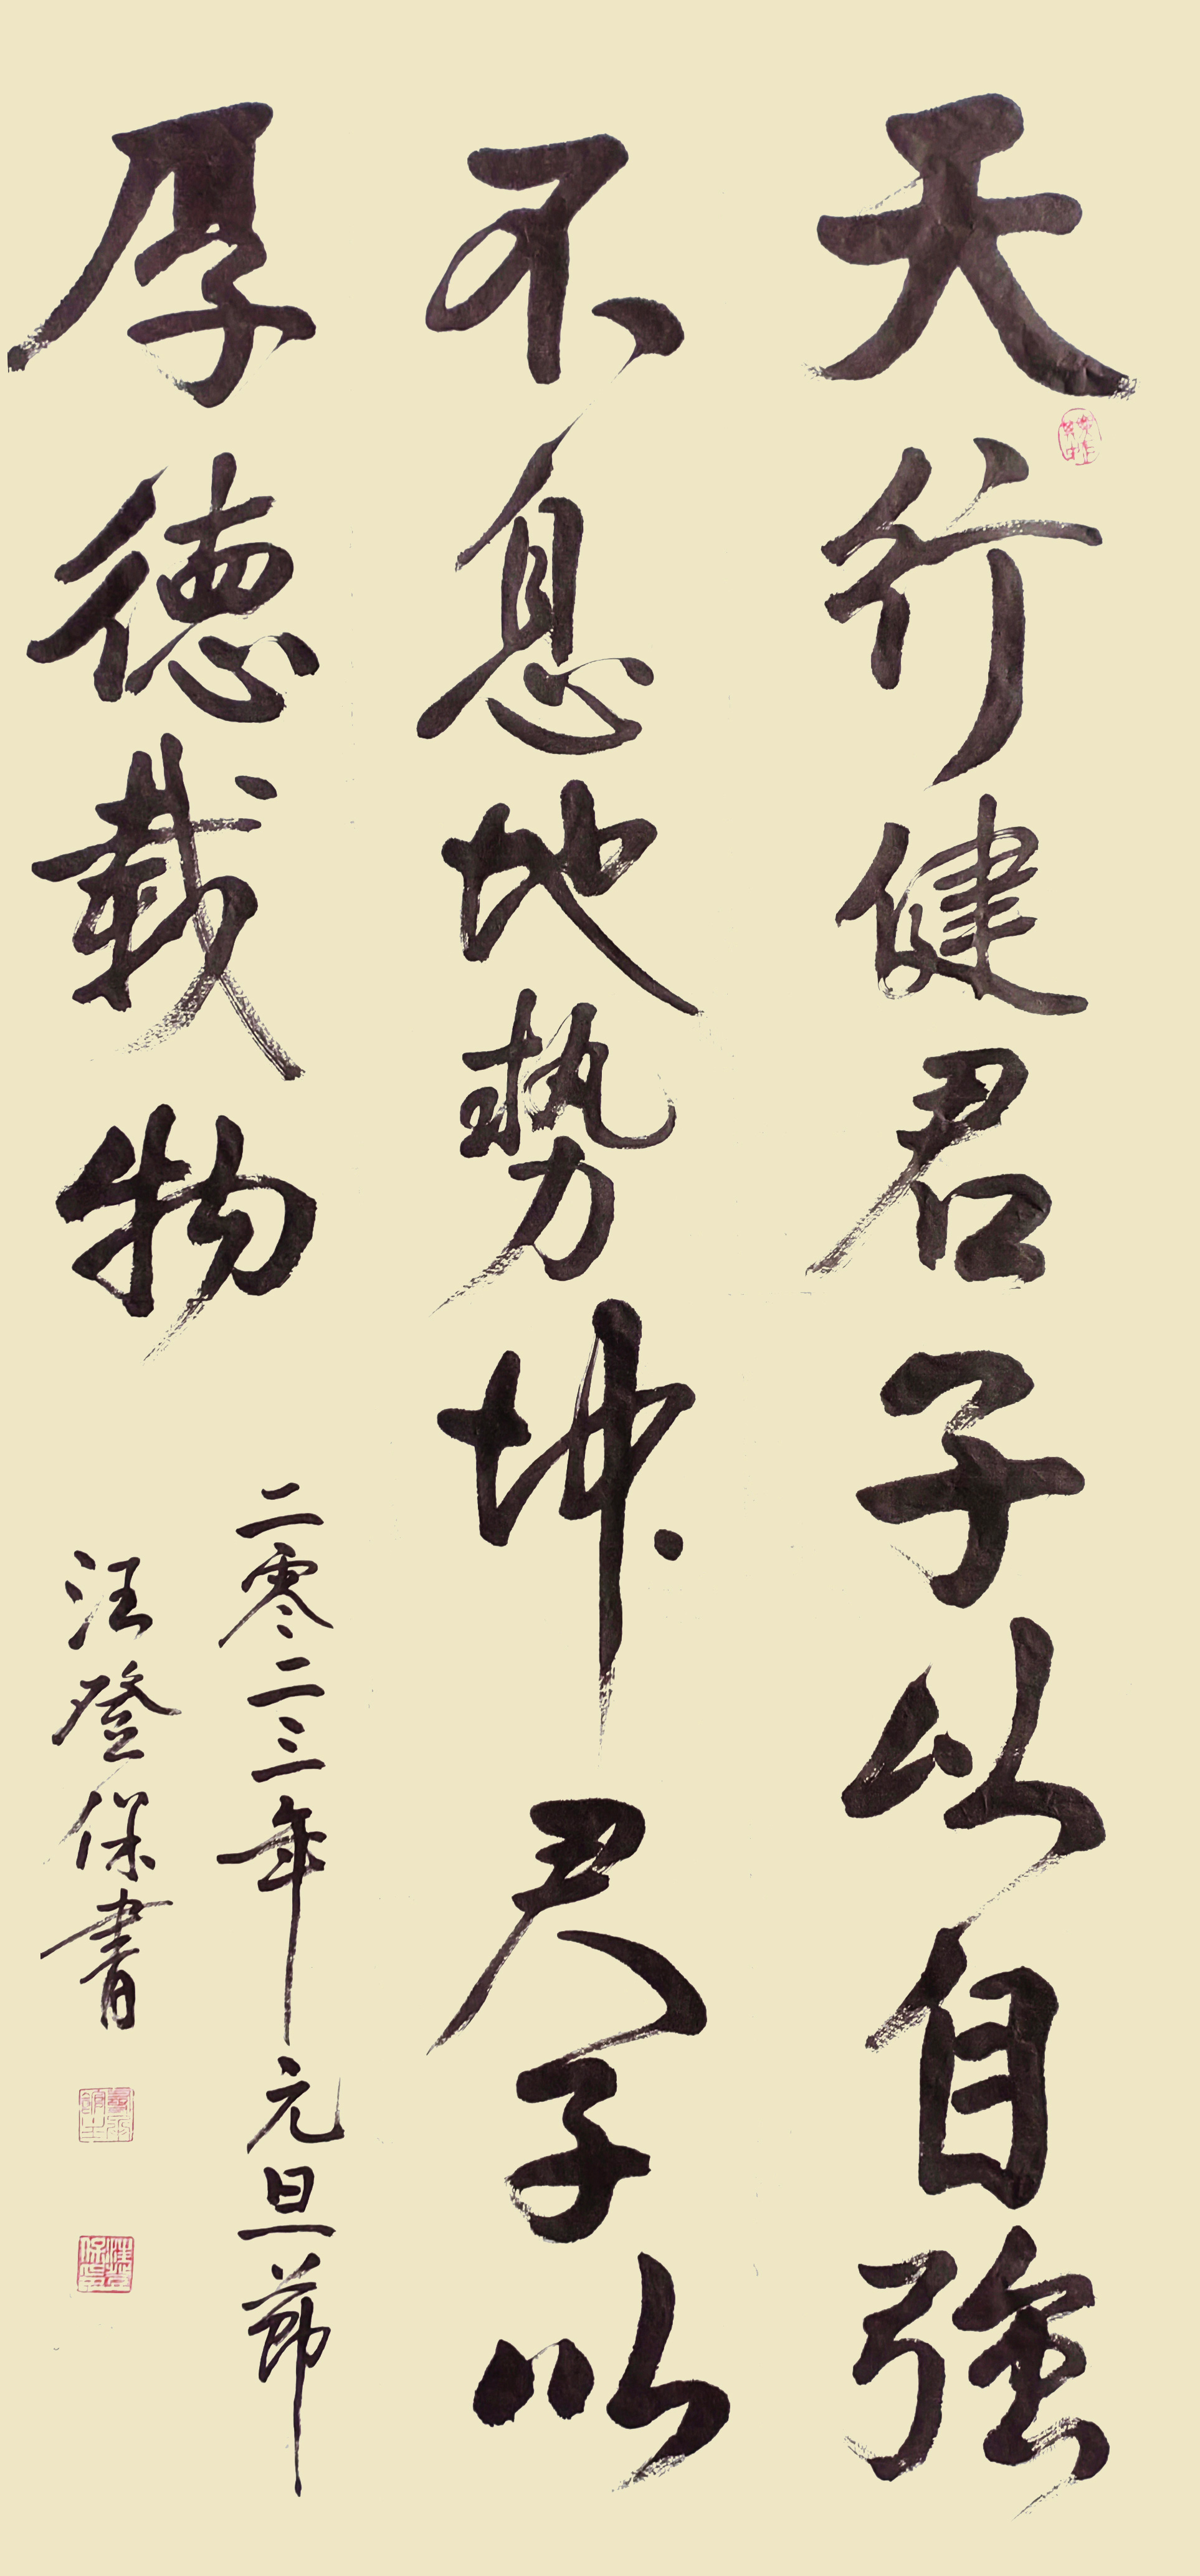 天行健君子以自強
不息地勢坤君子以
厚德載物
二零二三年元旦節
汪登保書